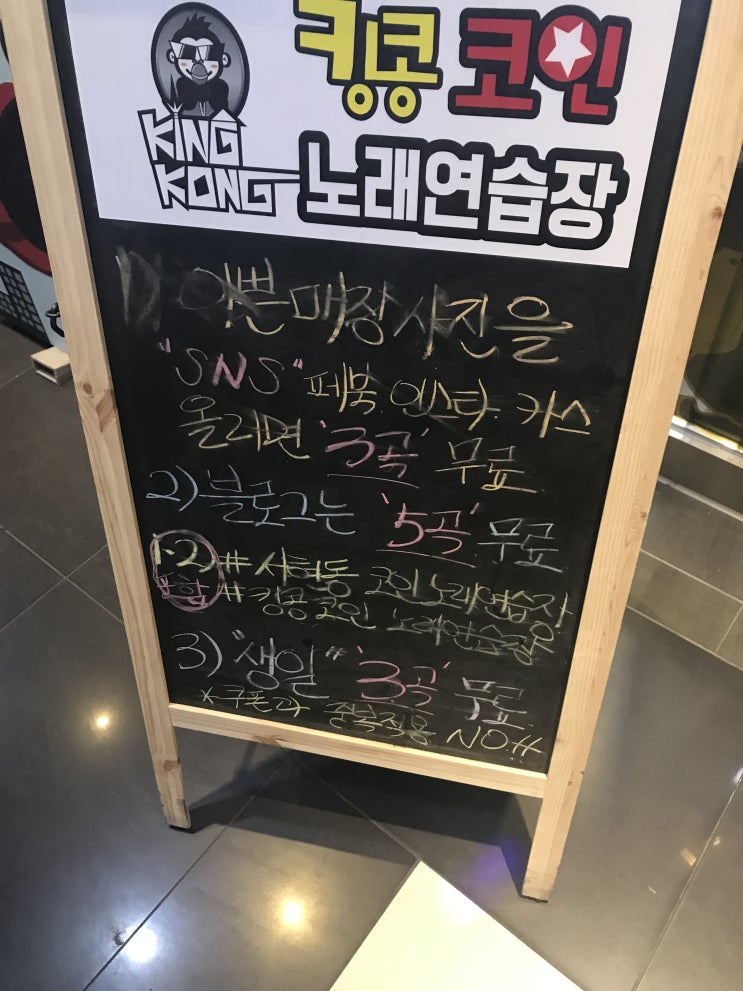 킹콩 코인
KING
KONG
노래연습장
1) 이쁜 매장 사진을
"SNS" 페북. 인스타. 카스
올리면 '3곡' 무료
2) 블로그는 '5곡' 무료
1-2) # 서현동 코인노래연습장
포함 # 킹콩 코인 노래연습장
3) "생일" '3곡' 무료
*쿠폰과 중복적용 NO.